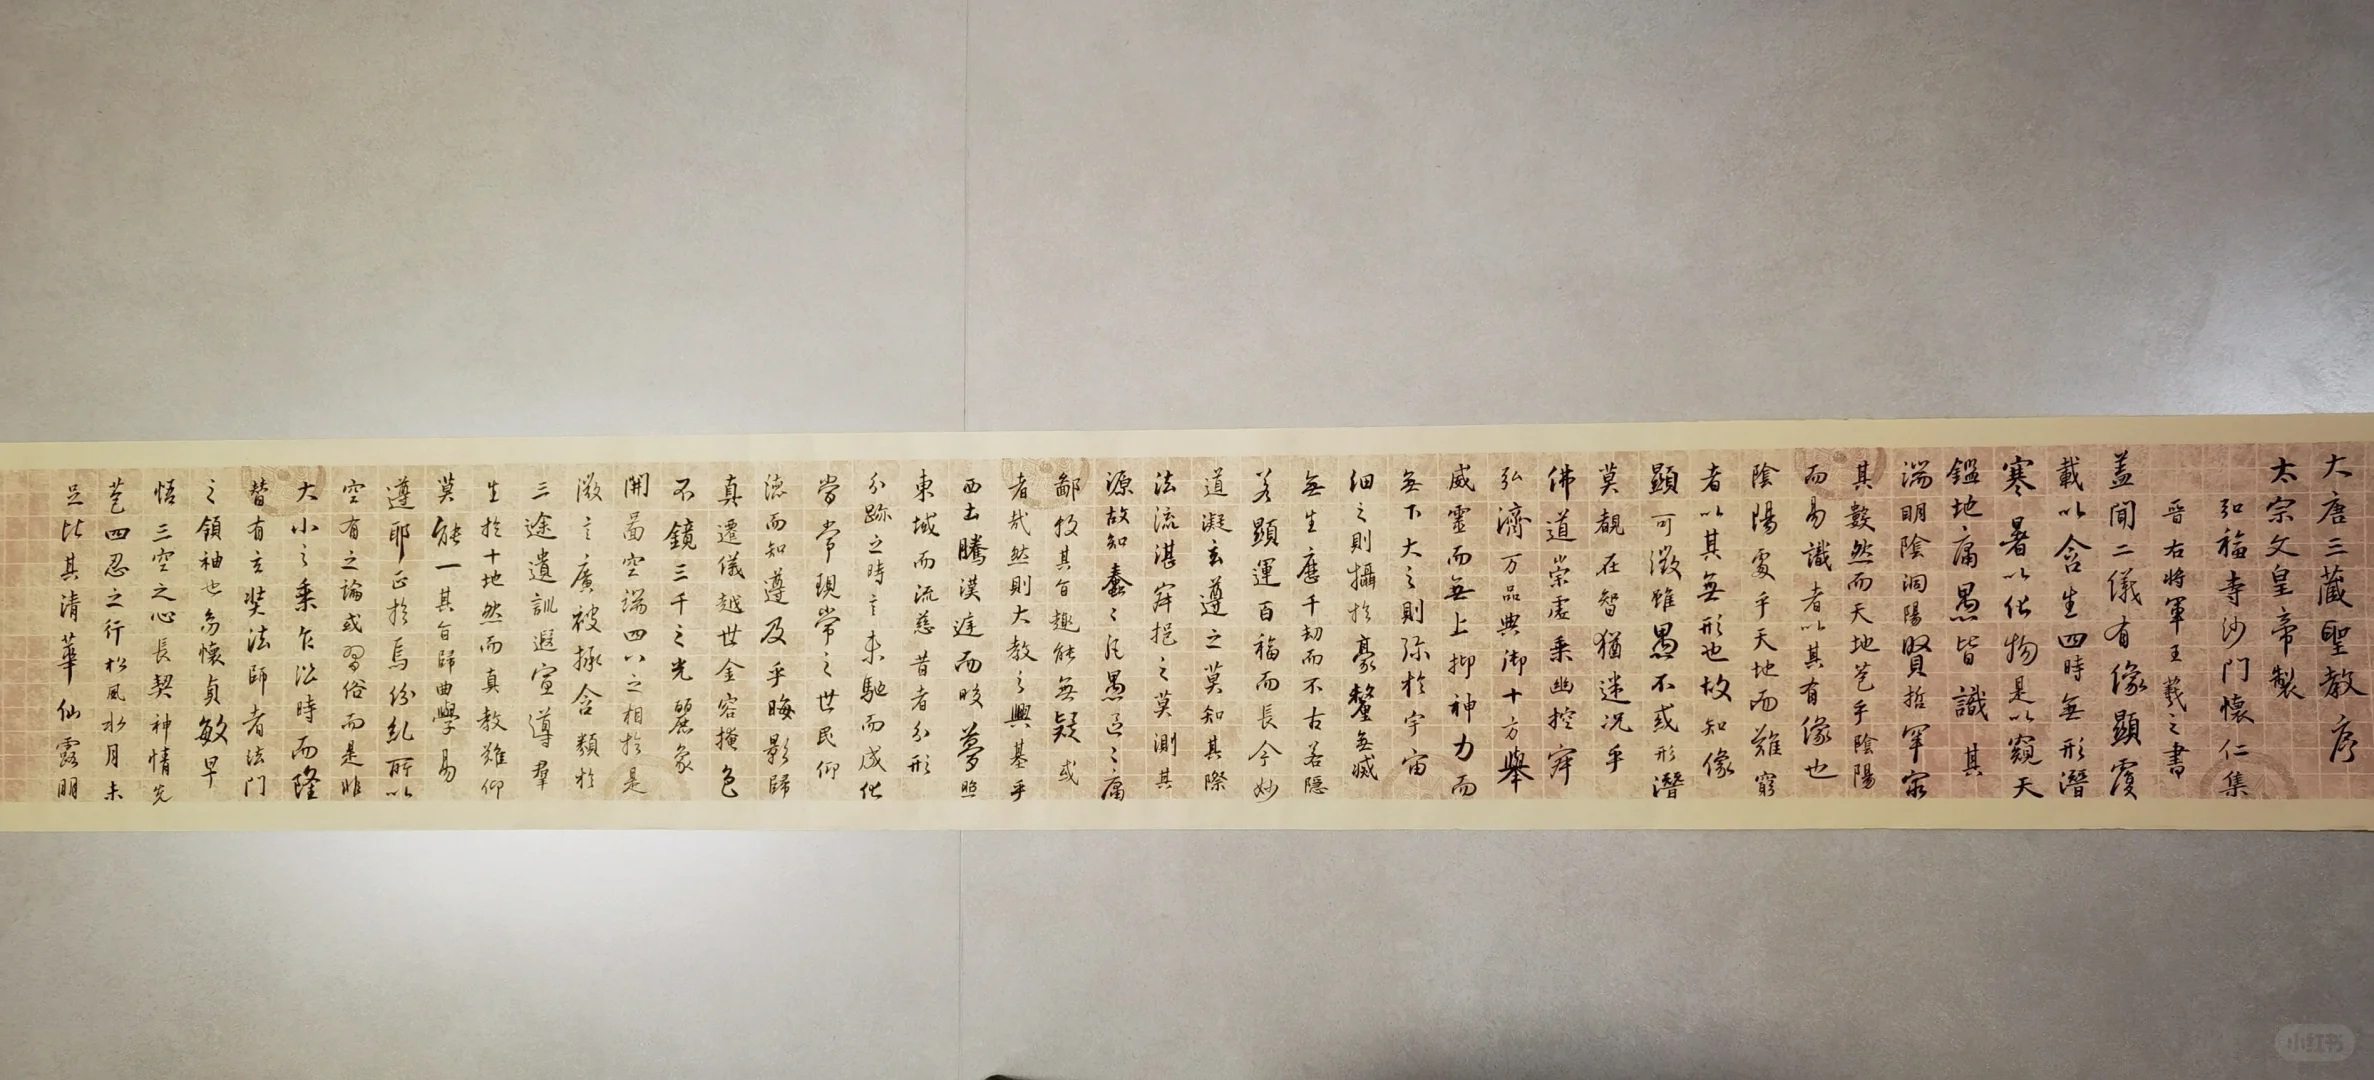 大唐三藏聖教序
太宗文皇帝製
弘福寺沙門懷仁集
晉右將軍王羲之書
蓋聞二儀有像顯覆
載以含生四時無形潛
寒暑以化物是以窺天
鑑地庸愚皆識其
端明陰洞陽賢哲罕窮
其數然而天地苞乎陰陽
而易識者以其有像也
陰陽處乎天地而難窮
者以其無形也故知像
顯可徵雖愚不惑形潛
莫覩在智猶迷況乎
佛道崇虛乘幽控寂
弘濟万品典御十方舉
威靈而無上抑神力而
無下大之則彌於宇宙
細之則攝於豪釐無滅
無生歷千劫而不古若隱
若顯運百福而長今妙
道凝玄遵之莫知其際
法流湛寂挹之莫測其
源故知蠢蠢凡愚區區庸
鄙投其旨趣能無疑或
者哉然則大教之興基乎
西土騰漢庭而皎夢照
東域而流慈昔者分形
分跡之時言未馳而成化
當常現常之世民仰
德而知遵及乎晦影歸
真遷儀越世金容掩色
不鏡三千之光麗象
開圖空端四八之相於是
微言廣被拯含類於
三途遺訓遐宣導群
生於十地然而真教難仰
莫能一其旨歸曲學易
遵耶正於焉紛糺所以
空有之論或習俗而是非
大小之乘乍沿時而隆
替有玄奘法師者法門
之領袖也幼懷貞敏早
悟三空之心長契神情先
苞四忍之行松風水月未
足比其清華仙露明
小红书